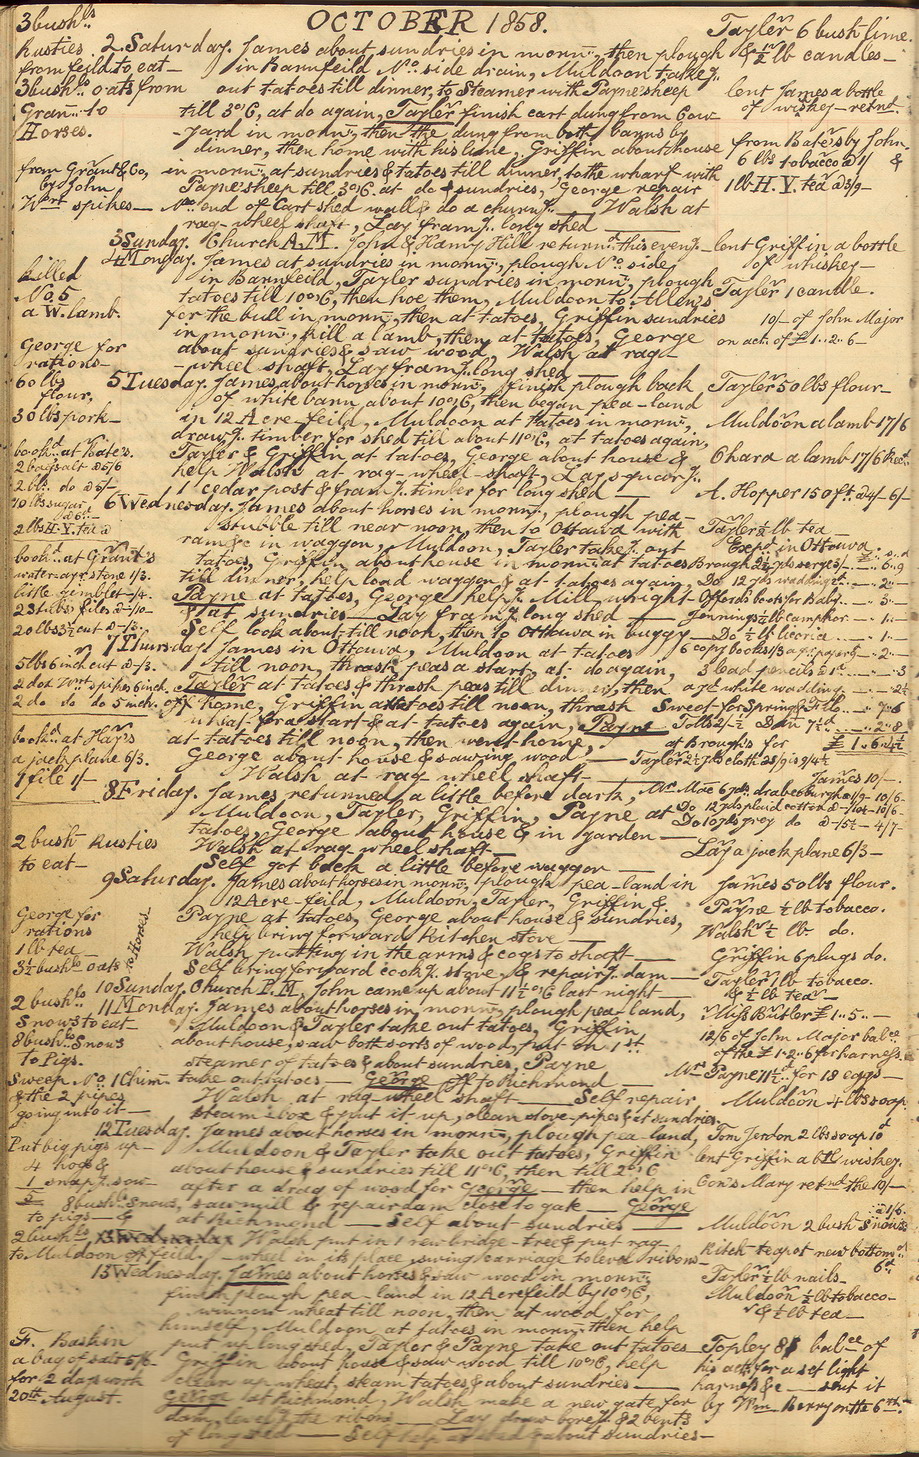 OCTOBER 1858.
3 bushls
Rusties
from feild to eat—
3 bushls oats from
Gran— to
Horses.
from Grant & Co,
by John
Wort spikes—
Killed
No. 5
a W. lamb.
George for
rations—
60 lbs
flour,
30 lbs pork—
2 bags salt @ 5/6
2 lbs. do @ 5/—
70 lbs sugar
2 lbs H.Y. tea @
bookd. at Grant's
water ayr. stone 1/3.
little gimblet —/4.
20 lbs 3½ cut @ —/3.
5 lbs 6 inch cut @ —/3.
2 doz Wrt spikes 6 inch.
2 do do do 5 inch.
bookd. at Hays
a jack plane 6/3.
1 file 1/—
2 bush Rusties
to eat—
George for
rations
1 lb tea
3½ bushls oats to Horses.
2 bushls
Snows to eat—
8 bushls Snows
To Pigs.
Sweep No. 1 Chim.
& the 2 pipes
going into it—
Put big pigs up—
4 hogs &
1 snapg. sow
5 8 bushls Snows,
to pigs— &
2 bushls
to Muldoon of feild.
F. Baskin
a bag of salt 5/6—
for 2 days work
20th August.
2 Saturday. James about sundries in morng., then plough
in Barnfeild No. side drain, Muldoon takeg.
out tatoes till dinner, to Steamer with Payne sheep
till 3 o'C, at do again, Tayler finish cart dung from Cow
-yard in morng, then the dung from both barns by
dinner, then home with his lime, Griffin about house
in morng. at sundries & tatoes till dinner, to the wharf with
Payne sheep till 3 o'C. at do & sundries, George repair
No. end of Cart-shed wall & do a churn,— Walsh at
rag-wheel shaft, Lay framg. long shed—
3 Sunday. Church A.M. John & Hamy Hill returnd. this eveng.—
4 Monday. James at sundries in morng., plough No. side
in Barnfeild, Tayler sundries in morng, plough
tatoes till 10 o'C, then hoe them, Muldoon to Allens
for the bull in morng, then at tatoes, Griffin sundries
in morng., kill a lamb, then at tatoes, George
about sundries & saw wood, Walsh at rag-
-wheel shaft, Lay framg. long shed—
5 Tuesday. James about horses in morng, finish plough back
of white barn about 10 o'C, then began pea-land
in 12 Acre-feild, Muldoon at tatoes in morng,
drawg. timber for shed till about 11 o'C, at tatoes again,
Tayler & Griffin at tatoes, George about house &
help Walsh at rag-wheel-shaft, Lay squarg.
1 cedar post & framg. timber for long shed—
6 Wednesday. James about horses in morng, plough pea-
stubble till near noon, then to Ottawa with
ram &c in waggon, Muldoon, Tayler takeg. out
tatoes, Griffin about house in morng. at tatoes
till dinner, help load waggon & at tatoes again,
Payne at tatoes, George helpg. Mill-wright
& at sundries— Lay framg. long shed—
Self look about till noon, then to Ottawa in buggy—
7 Thursday. James in Ottawa, Muldoon at tatoes
till noon, thrash peas a start, at do again,
Tayler at tatoes & thrash peas till dinner, then
off home, Griffin at tatoes till noon, thrash
wheat for a start & at tatoes again, Payne
at tatoes till noon, then went home,
George about house & sawing wood,—
Walsh at rag wheel shaft—
8 Friday. James returned a little before dark,
Muldoon, Tayler, Griffin, Payne at
tatoes, George about house & in garden—
Walsh at rag wheel shaft—
Self got back a little before waggon—
9 Saturday. James about horses in morng, plough pea-land in
12 Acre-feild, Muldoon, Tayler, Griffin &
Payne at tatoes, George about house & sundries,
help bring forward Kitchen stove—
Walsh putting in the arms & cogs to shaft—
Self bring forward cookg. stove & repairg. dam—
10 Sunday. Church P.M. John came up about 11½ o'C last night—
11 Monday. James about horses in morng, plough pea-land,
Muldoon & Tayler take out tatoes, Griffin
about house, saw both sorts of wood, put on 1st
steamer of tatoes & about sundries, Payne
take out tatoes— George off to Richmond—
Walsh at rag wheel shaft— Self repair
steam-box & put it up, clean stove-pipes & at sundries.
12 Tuesday. James about horses in morng, plough pea-land,
Muldoon & Tayler take out tatoes, Griffin
about house & sundries till 11 o'C, then till 2 o'C
after a drag of wood for George— then help in
saw mill & repair dam close to gate— George
at Richmond— Self about sundries—
Walsh put in 1 new bridge-tree & put rag-
-wheel in its place, swing carriage to level ribons—
13 Wednesday. James about horses & saw wood in morng,
finish plough pea-land in 12 Acre feild by 10 o'C,
winnow wheat till noon, then at wood for
himself, Muldoon at tatoes in morng, then help
put up long shed, Tayler & Payne take out tatoes—
Griffin about house & saw wood till 10 o'C, help
clean up wheat, steam tatoes & about sundries—
George at Richmond, Walsh make a new gate for
dam, level the ribons— Lay
of long shed— Self help at shed & about sundries—
Tayler 6 bush lime.
& ½ lb candles—
lent James a bottle
of whiskey—retnd.
from Bate's by John,
6 lbs tobacco @ 1/ &
1 lb H.Y. tea @ 3/9—
lent Griffin a bottle
of whiskey—
Tayler 1 candle.
10/— of John Major
on act. of £1..2..6—
Tayler 50 lbs flour—
Muldoon a lamb 17/6
Ohara a lamb 17/6 Recd.
A. Hopper 150 ft. @ 4/— 6/—
Tayler ½ lb tea
Exps. in Ottawa
Jennings ½ lb camphor— .. 1.—
Do ½ lb licoria .. — .. 1.—
3 lead pencils
at Brough's for
James 10/—.
Lay a jack plane 6/3—
James 50 lbs flour.
Payne ½ lb tobacco.
Walsh ½ lb do.
Griffin 6 plugs do.
Tayler 1 lb tobacco.
& ½ lb tea—
Miss Butler £1..5..—
12/6 of John Major balce.
of the £1..2..6 for harness.
Mrs Payne 11½d. for 18 eggs—
Muldoon 4 lbs soap
Tom Jordon 2 lbs soap 10d
lent Griffin a btl wiskey.
Con's Mary retnd the 10/—
@ 1/6.
Muldoon 2 bush Snows
Kitch teapot new bottomd.
6d
Tayler ½ lb nails—
Muldoon ½ lb tobacco—
& ½ lb tea—
Topley balce of
his act. for a set light
harness &c— sent it
by Wm Berry on the 6th.—